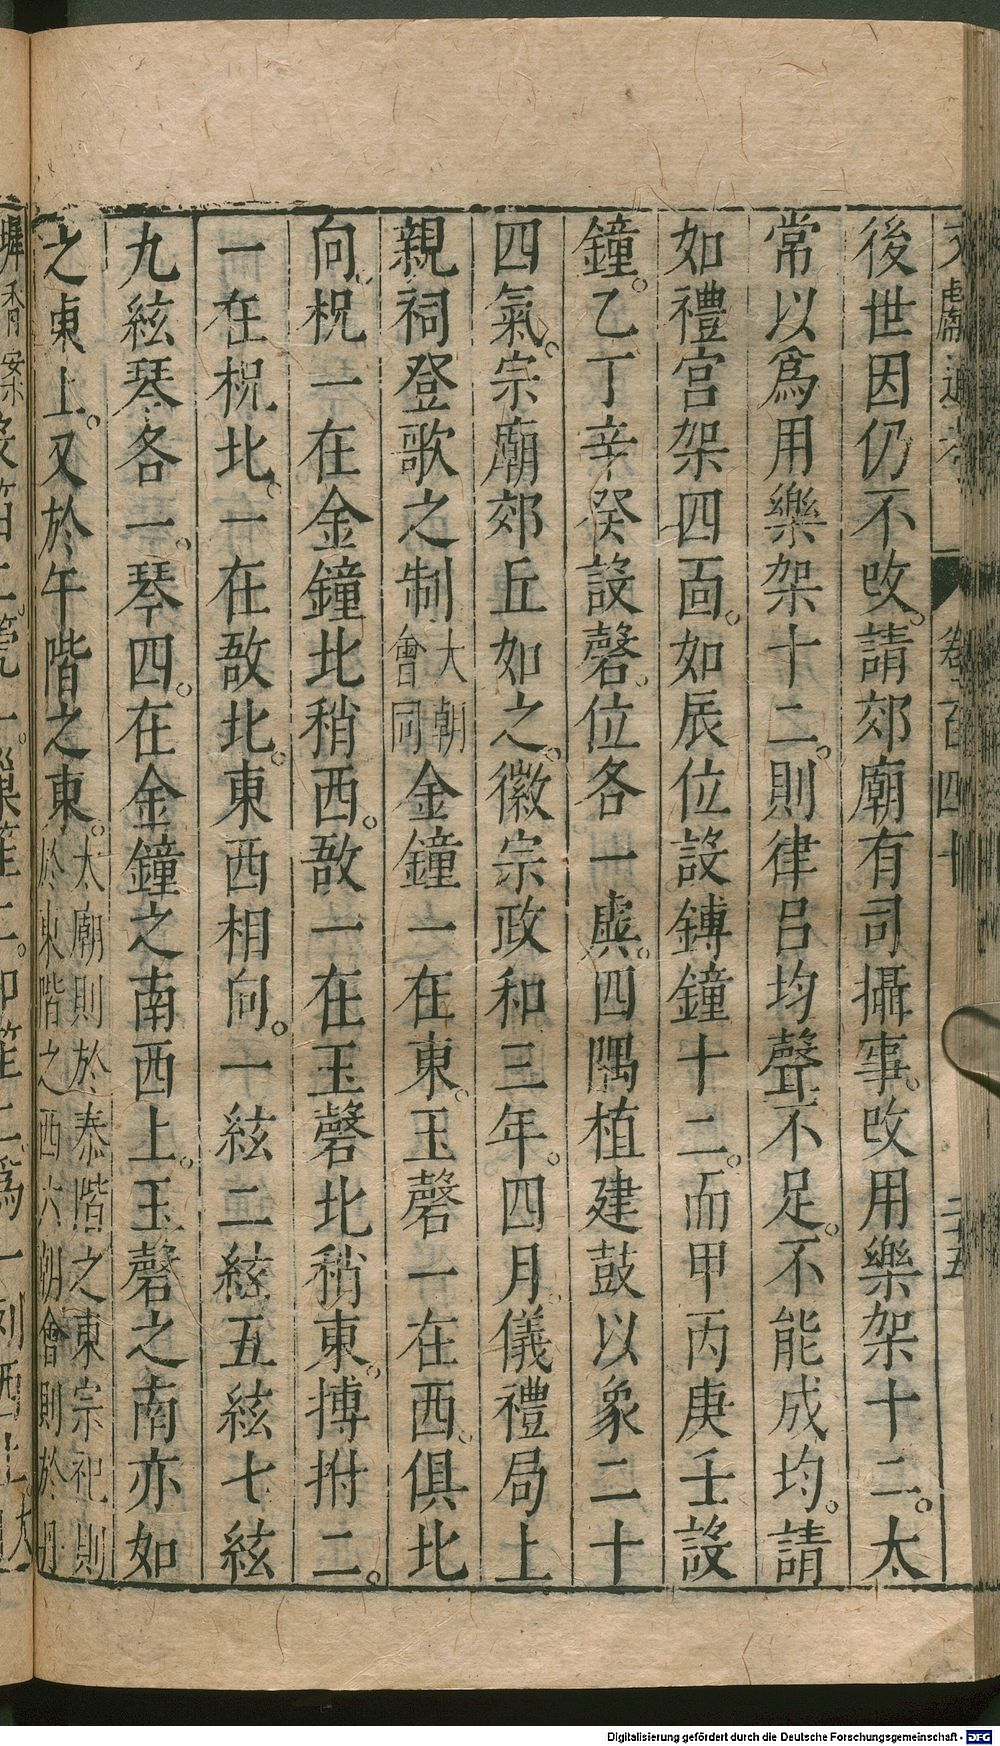 後世因仍不改。請郊廟有司攝事。改用樂架十二。太
常以爲用樂架十二。則律呂均聲不足。不能成均。請
如禮宮架四面。如辰位設鏄鐘十二。而甲丙庚壬設
鐘。乙丁辛癸設磬。位各一虡。四隅植建鼓以象二十
四氣。宗廟郊丘如之。徽宗政和三年。四月儀禮局上
親祠登歌之制大朝會同金鐘一在東。玉磬一在西。俱北
向。柷一在金鐘北稍西。敔一在玉磬北稍東。摶拊二。
一在柷北。一在敔北。東西相向。一絃二絃五絃七絃
九絃琴各一。琴四。在金鐘之南西上。玉磬之南亦如
之東上。又於午階之東。太廟則於泰階之東宗祀則於東階之西大朝會則於丹
卷百四十
二十五
Digitalisierung gefördert durch die Deutsche Forschungsgemeinschaft - DFG